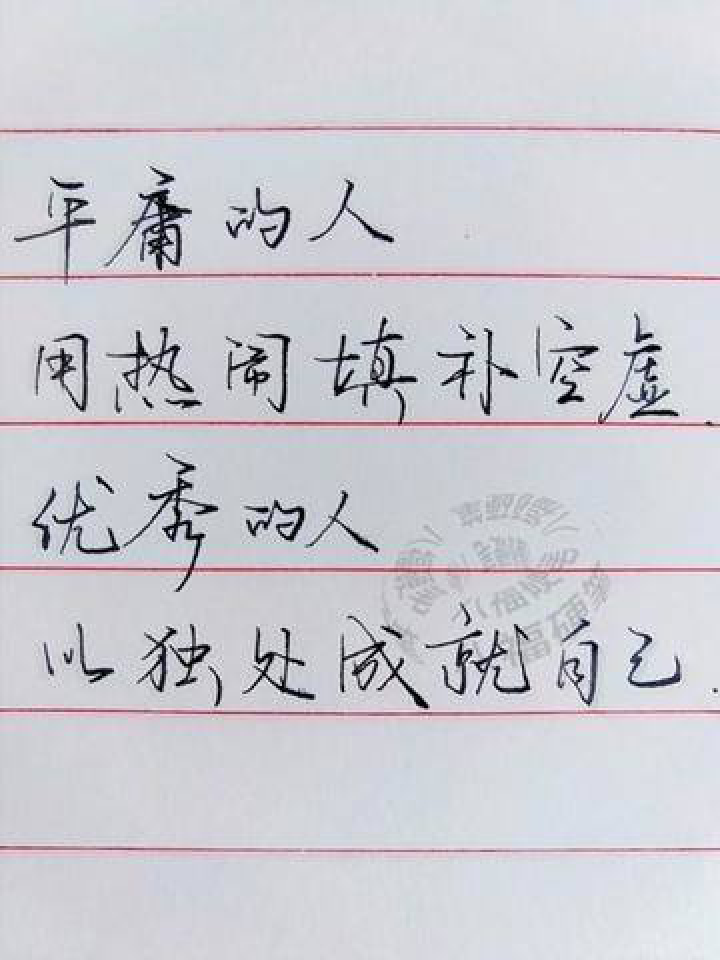 平庸的人
用热闹填补空虚.
优秀的人
以独处成就自己.